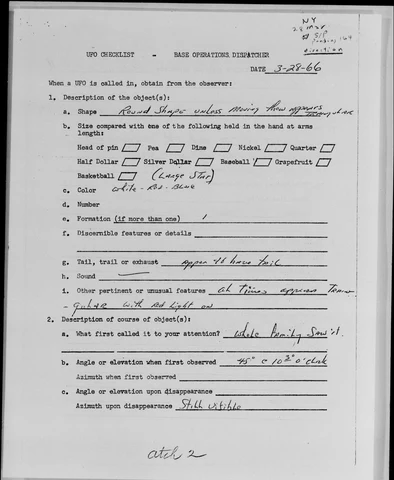 NY
28 Mar
UFO CHECKLIST - BASE OPERATIONS DISPATCHER
DATE 3-28-66
When a UFO is called in, obtain from the observer:
1. Description of the object(s):
a. Shape Round Shape unless moving then appears
b. Size compared with one of the following held in the hand at arms
length:
Head of pin Pea Dime Nickel Quarter
Half Dollar Silver Dollar Baseball Grapefruit
Basketball (Large Star)
c. Color White - Red - Blue
d. Number
e. Formation (if more than one) 1
f. Discernible features or details
g. Tail, trail or exhaust appear to have tail
h. Sound
i. Other pertinent or unusual features at times appears Trian-
gular with Red light on
2. Description of course of object(s):
a. What first called it to your attention? Whole family Saw it.
b. Angle or elevation when first observed 45° @ 10 30 o'clock
Azimuth when first observed
c. Angle or elevation upon disappearance
Azimuth upon disappearance Still visible
atch 2